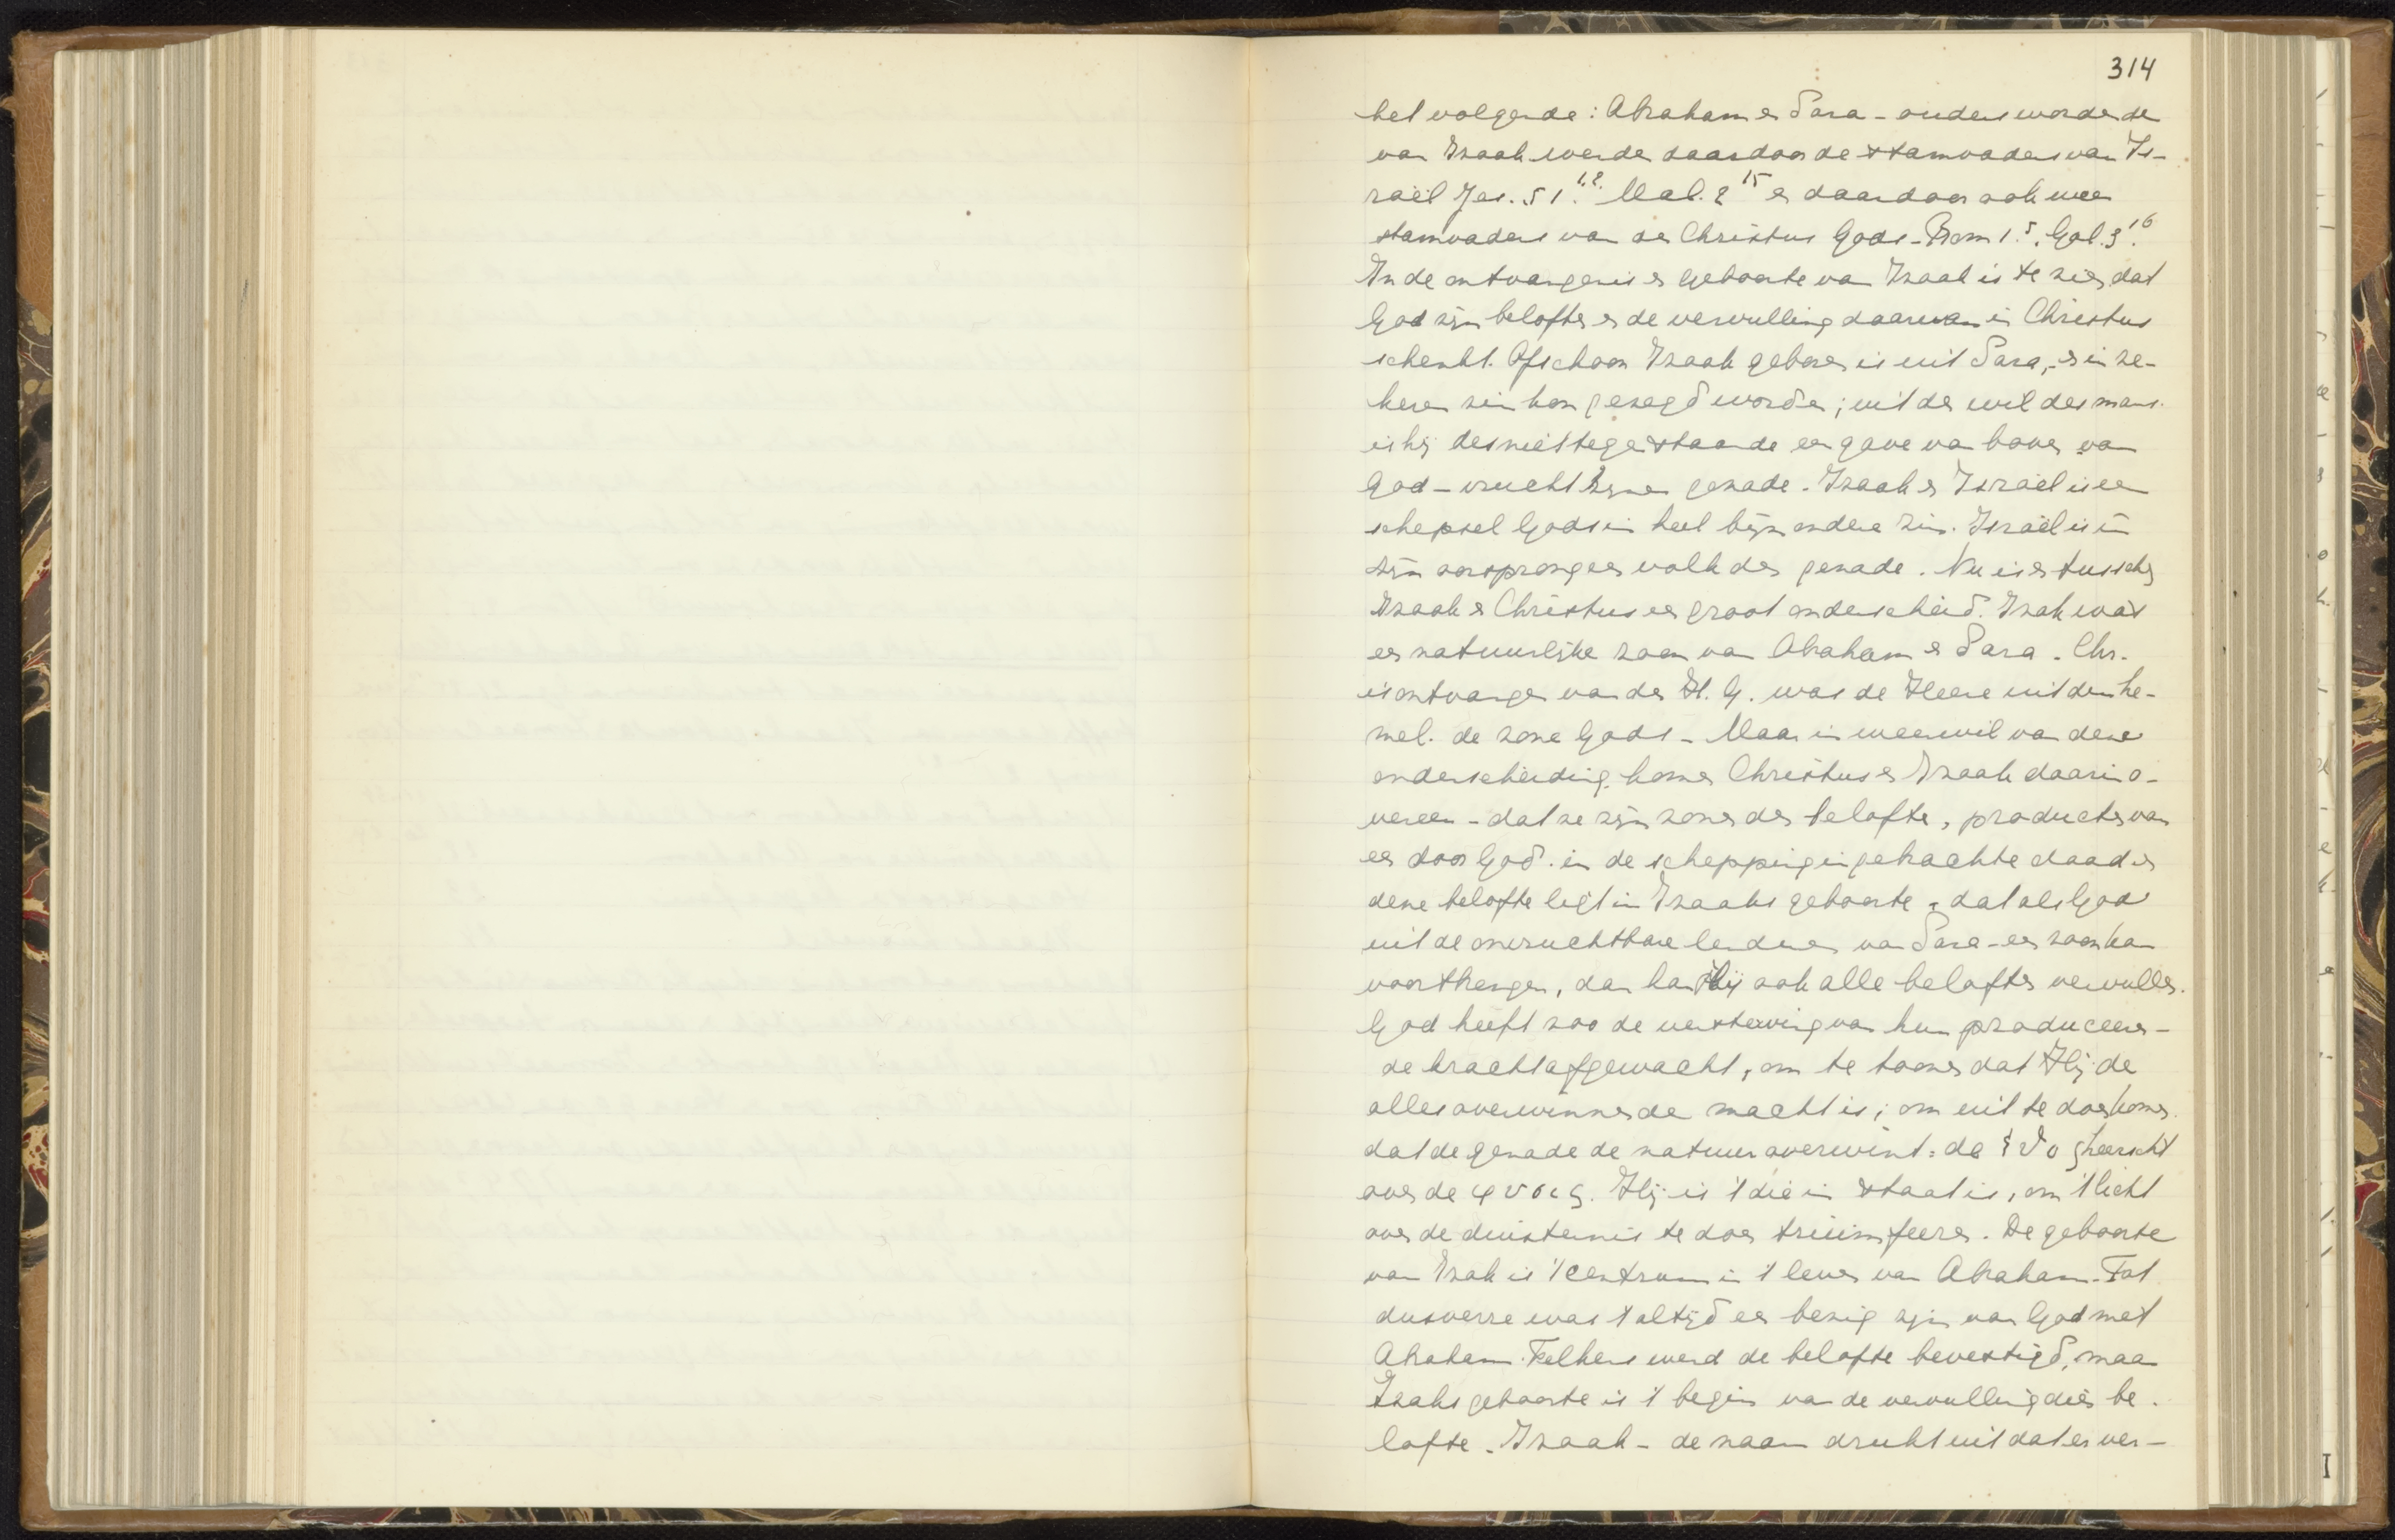 314
het volgende: Abraham en Sara - ouders wordende
van Izaak werden daardoor de stamvaders van Is-
raël Jes. 51 1.2. Mal. 2 15 en daardoor ook weer
stamvaders van den Christus Gods - Rom 1.5. Gal. 3 16.
In de ontvangenis en geboorte van Izaak is te zien, dat
God zijn beloften en de vervulling daarvan in Christus
schenkt. Ofschoon Izaak geboren is uit Sara, - en in ze-
keren zin kon gezegd worden; uit den wil des mans.
is hij desniettegenstaande een gave van boven van
God - vrucht Zijner genade. Izaak en Israël is een
schepsel Gods in heel bijzondere zin. Israël is in
zijn oorsprong een volk der genade. Nu is er tusschen
Izaak en Christus een groot onderscheid. Izak was
een natuurlijke zoon van Abraham en Sara. Chr.
is ontvangen van den H. G. was de Heere uit den he-
mel. de zone Gods - Maar in weerwil van deze
onderscheiding komen Christus en Izaak daarin o-
vereen - dat ze zijn zonen der belofte, producten van
een door God in de schepping ingebrachte daad en
deze belofte ligt in Izaaks geboorte, dat als God
uit de onvruchtbare lendenen van Sara - een zoon kan
voortbrengen, dan kan Hij ook alle beloften vervullen.
God heeft zoo de versterving van hun produceeren-
de kracht afgewacht, om te toonen dat Hij de
alles overwinnende macht is; om uit te doen komen.
dat de genade de natuur overwint: de heerscht
over de φυσις. Hij is 't die in staat is, om 't licht
over de duisternis te doen triumfeeren. De geboorte
van Izak is 't centrum in 't leven van Abraham. Tot
dusverre was 't altijd een bezig zijn van God met
Abraham. Telkens werd de belofte bevestigd, maar
Izaks geboorte is 't begin van de vervulling dier be-
lofte. Izaak - de naam drukt uit dat er ver-